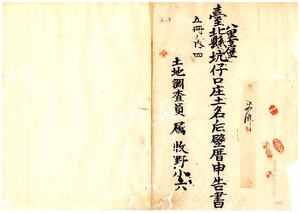 八里坌堡
臺北縣坑仔口庄土名后壁厝申告書
五冊ノ內四
土地調查員 屬 牧野小六